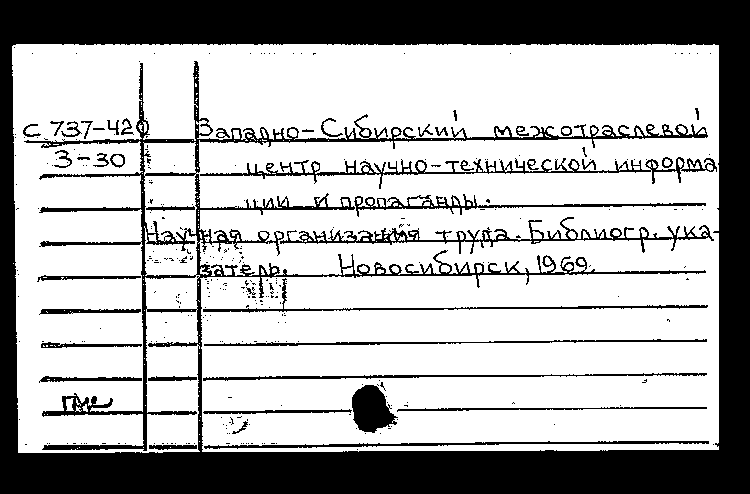 С 737-420 Западно-Сибирский межотраслевой
З-30 центр научно-технической информа
ции и пропаганды.
Научная организация труда. Библиогр. ука-
затель. Новосибирск, 1969.